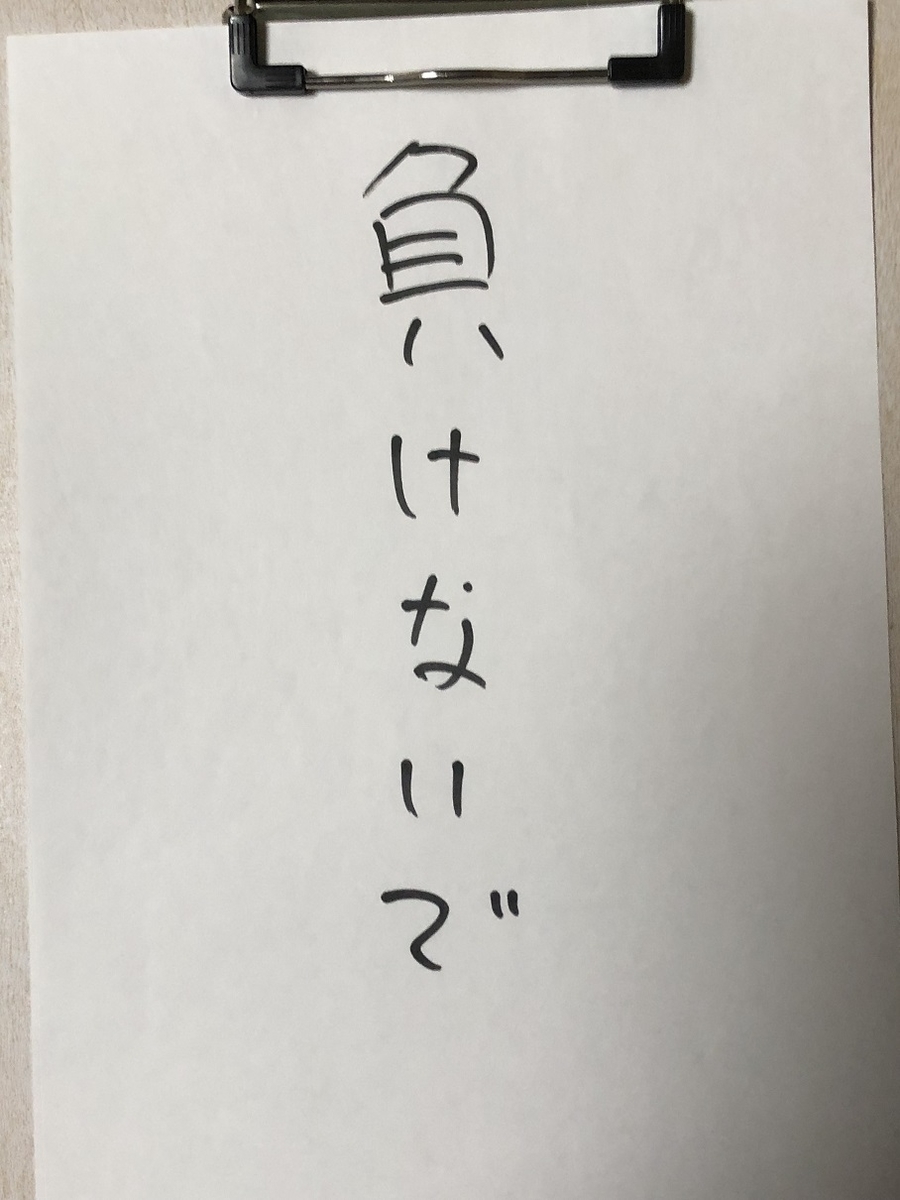 負けないで